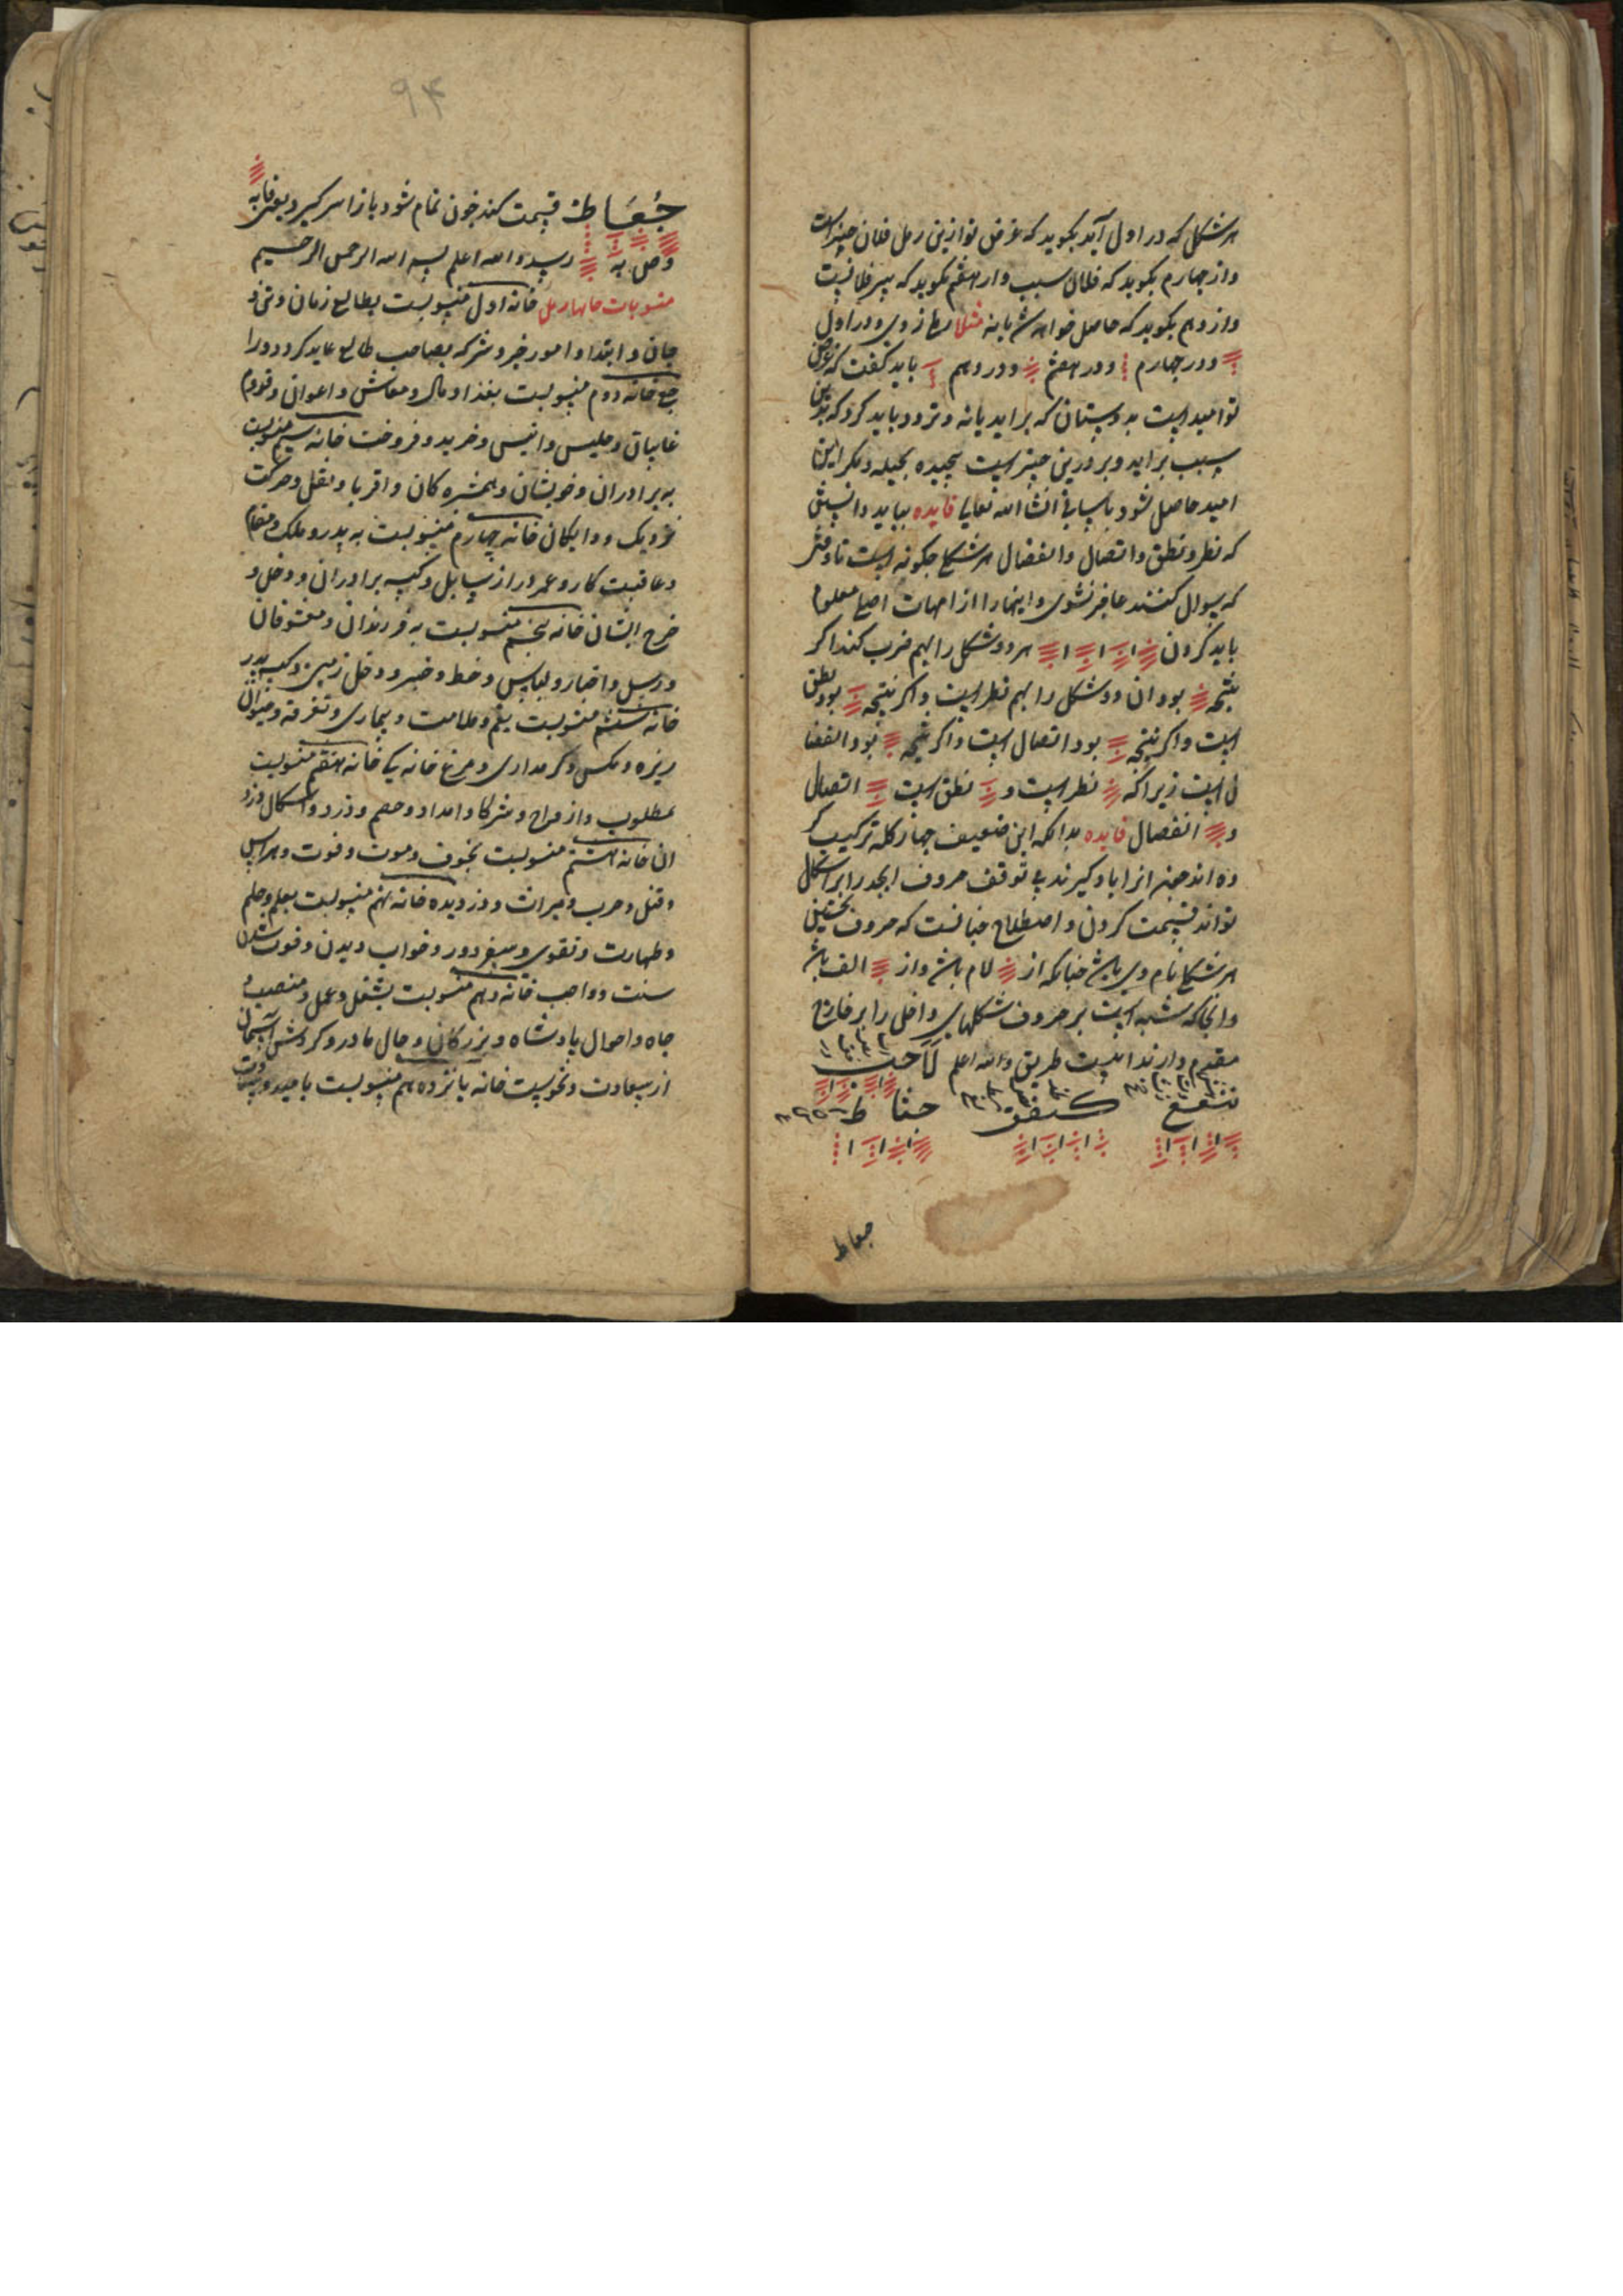 هر شکل که در اول آید بکوید که غرض تو ازین رمل فلان چیز است
و از چهارم بکوید که فلان سبب و از هفتم بکوید که بسر فلانیست
و از دهم بکوید که حاصل خواهد شد یا نه مثلا رملی زدی و در اول
و در چهارم و در هفتم و در دهم باید کفت که غرض
تو امید است بدوستان که براید یا نه و تردد باید کرد که بدین
سبب براید و برو این چیز است بحیله و مکر این
امید حاصل شود باسانی انشا الله تعالی فایده بباید دانستن
که نظر و نطق و اتصال و انفصال هر شکلی چکونه است تا وقتی
که سوال کنند عاجز نشوی و اینها را از امهات اصلی معلوم
باید کردن هر دو شکل را بهم ضرب کند اکر
نتیجه بود ان دو شکل را بهم نظر است و اکر نتیجه بود نطق
است و اکر نتیجه بود اتصال است و اکر نتیجه بود انفصا
ل است زیرا که نظر است و نطق است اتصال
و انفصال فایده بدانکه این ضعیف چهار کلمه ترکیب کر
ده اند چون انرا یاد کیرند بی توقف حروف ابجد را بر اشکال
تواند قسمت کردن و اصطلاح چنانست که حروف نخستین
هر شکلی نام وی باشد چنانکه از لام باشد و از الف باشد
و انجا که مشبه است بر حروف شکلهای داخل را بر خارج
مقدم دارند اینست طریق و الله اعلم
جعاط
۹۴
جُعَاط قسمت کند چون تمام شود باز از سر کیرد یعنی
رسد و الله اعلم بسم الله الرحمن الرحیم
منسوبات خانها رمل خانه اول منسوبست بطالع زمان و تن و
جان و ابتدا و امور خیر و شر که بصاحب طالع عاید کردد و را
جع خانه دوم منسوبست بغذا و مال و معاش و اعوان و قدوم
غایبان و جلیس و انیس و خرید و فروخت خانه سیم منسوبست
به برادران و خویشان و همشیره کان و اقربا و نقل و حرکت
نزدیک و دایکان خانه چهارم منسوبست به پدر و ملک و مقام
و عاقبت کار و عمر دراز سایل و کیسه برادران و دخل و
خرج ایشان خانه پنجم منسوبست به فرزندان و معشوقان
و رسل و اخبار و لباس و خط و خبر و دخل زمین و کیسه پدر
خانه ششم منسوبست بغم و ملامت و بیماری و تفرقه و حیوان
ریزه و مکس و کرمداری و مرغ خانه یکی خانه هفتم منسوبست
بمطلوب و ازواج و شرکا و امداد و خصم و دزد و اشکال دزد
ان خانه هشتم منسوبست بخوف و موت و فوت و هراس
و قتل و حرب و میراث و دزدیده خانه نهم منسوبست بعلم و حلم
و طهارت و تقوی و سفر دور و خواب دیدن و فوت شدن
سنت و واجب خانه دهم منسوبست بشغل و عمل و منصب و
جاه و احوال پادشاه و بزرکان و حال مادر و کردش آسمان
از سعادت و نحوست خانه یانزدهم منسوبست بامید و سعادت